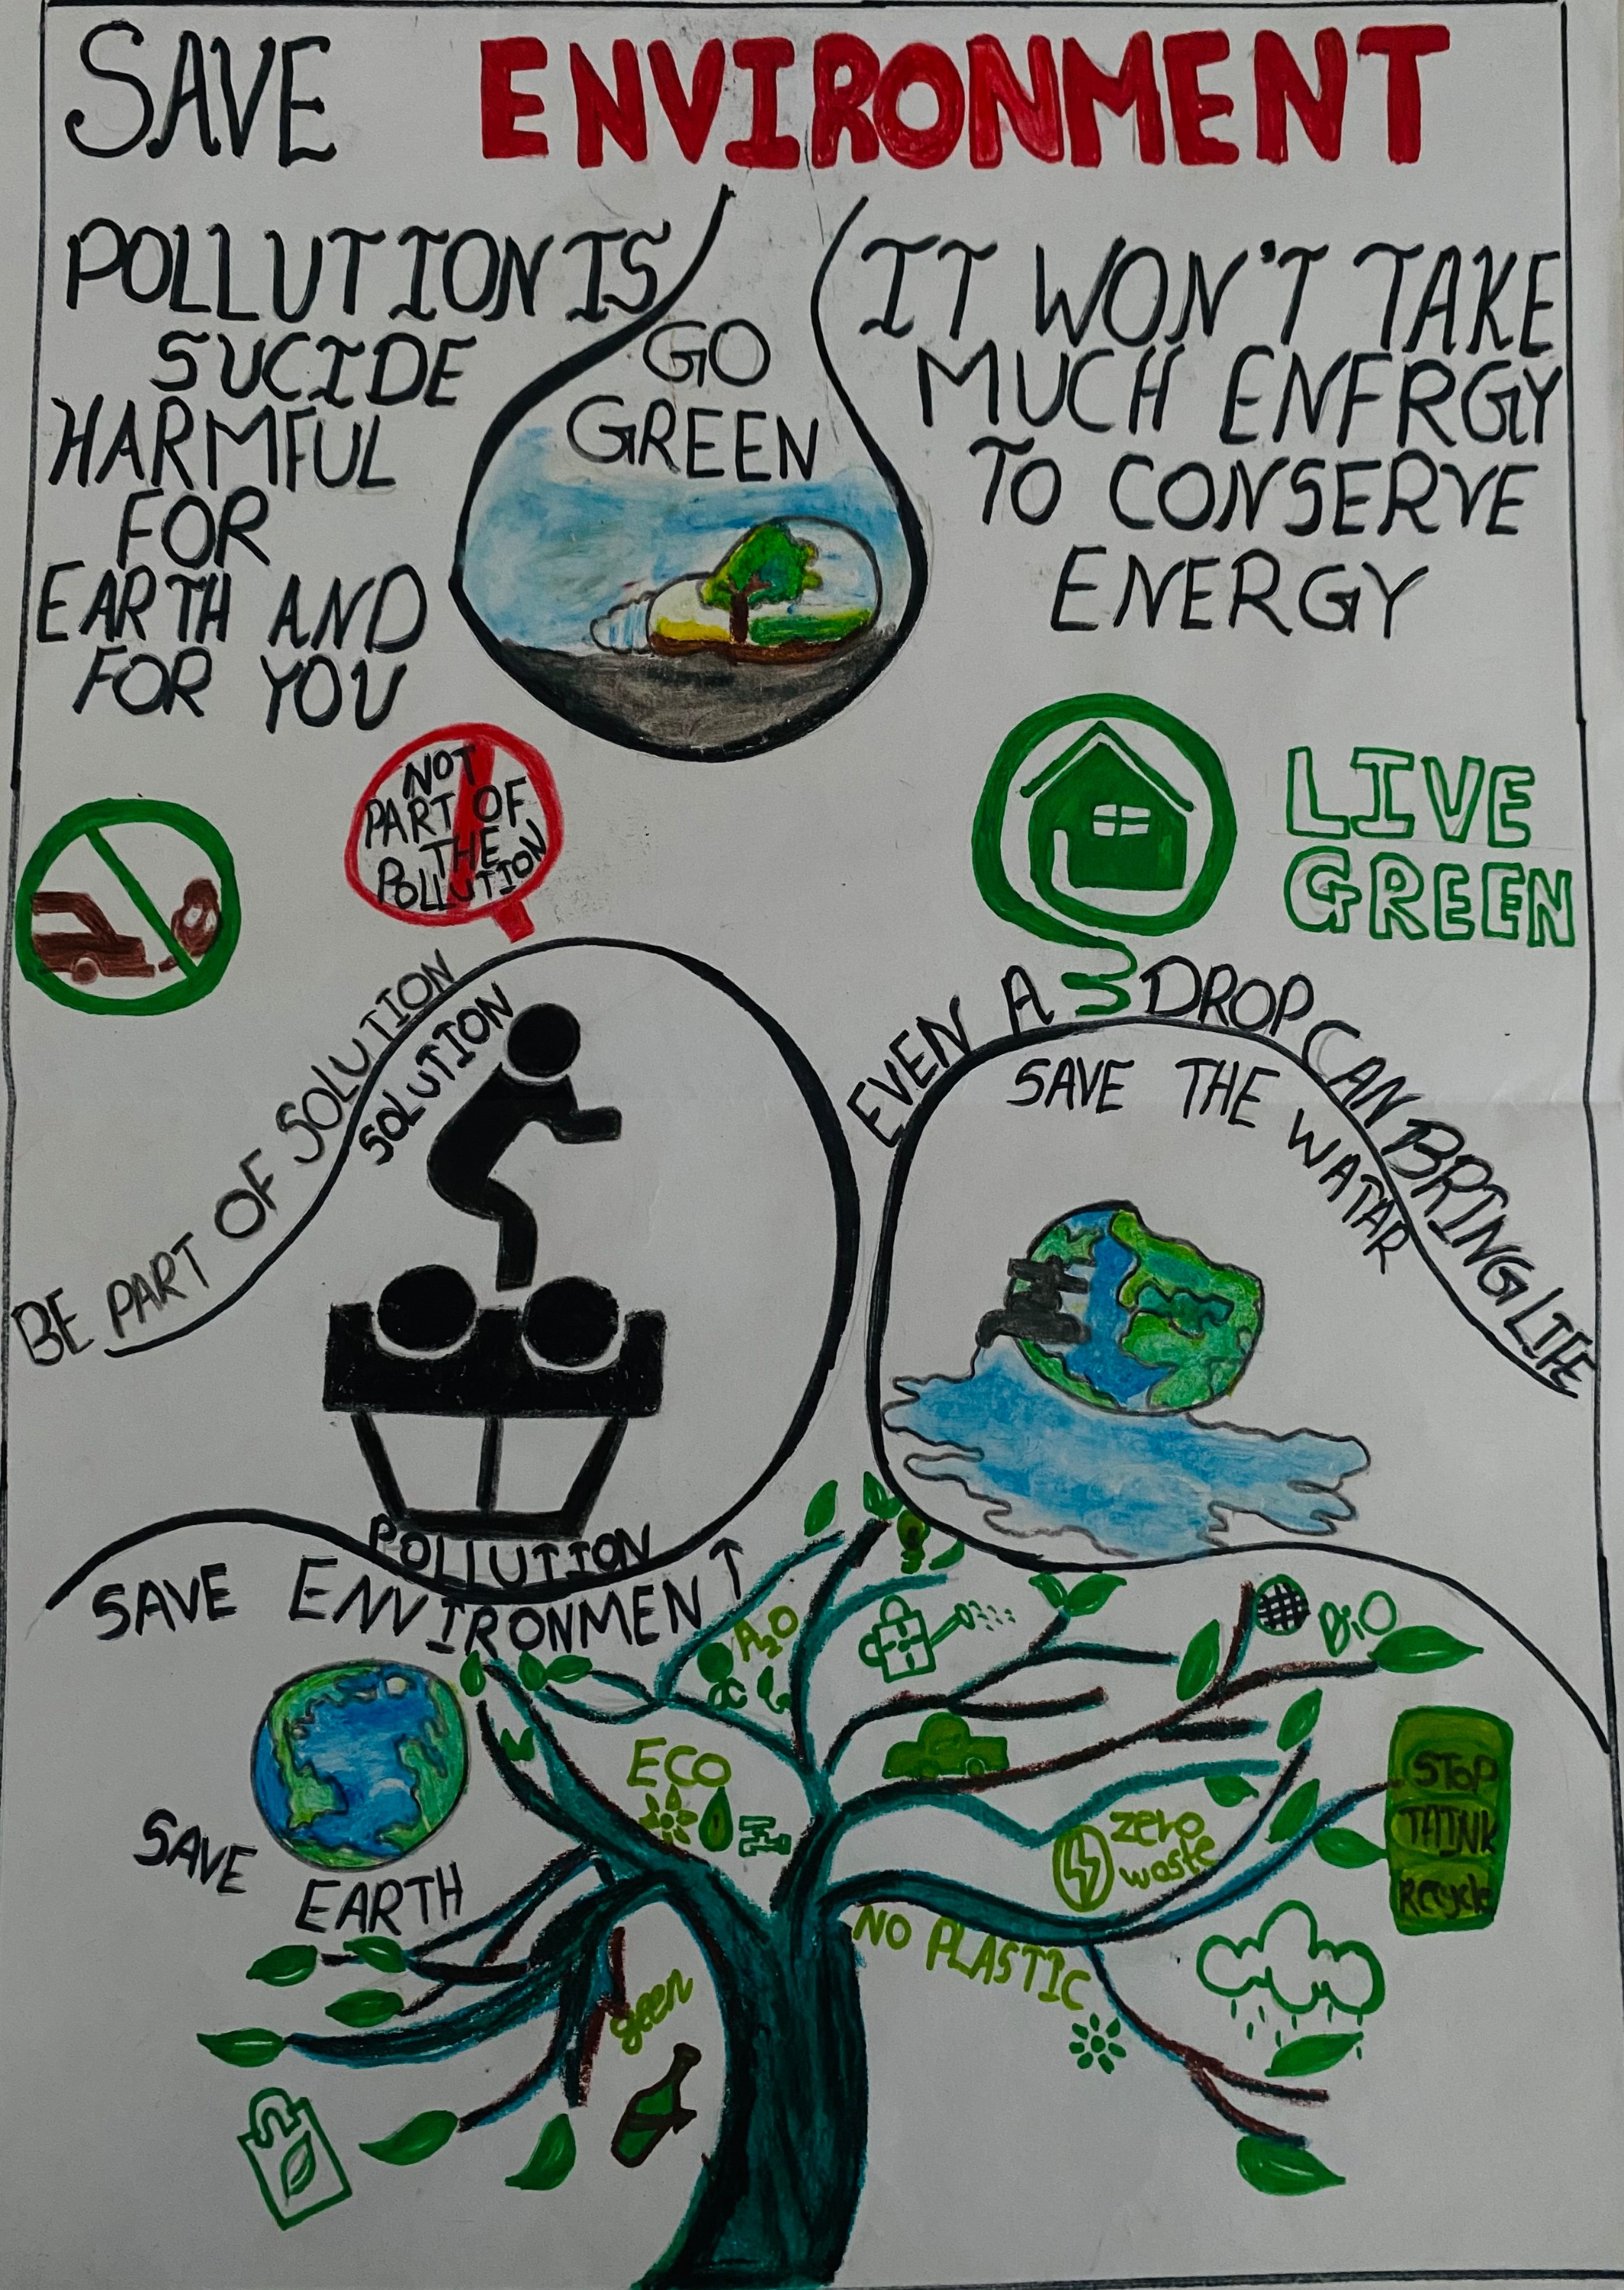 SAVE ENVIRONMENT
POLLUTION IS
SUCIDE
HARMFUL
FOR
EARTH AND
FOR YOU
GO
GREEN
IT WON'T TAKE
MUCH ENFRGY
TO CONSERVE
ENERGY
NOT
PART OF
THE
POLLUTION
LIVE
GREEN
BE PART OF SOLUTION
SOLUTION
POLLUTION
EVEN A DROP CAN BRING LIFE
SAVE THE WATAR
SAVE ENVIRONMENT
SAVE
EARTH
A2O
BiO
ECO
zero
waste
STOP
THINK
Recycle
NO PLASTIC
geen